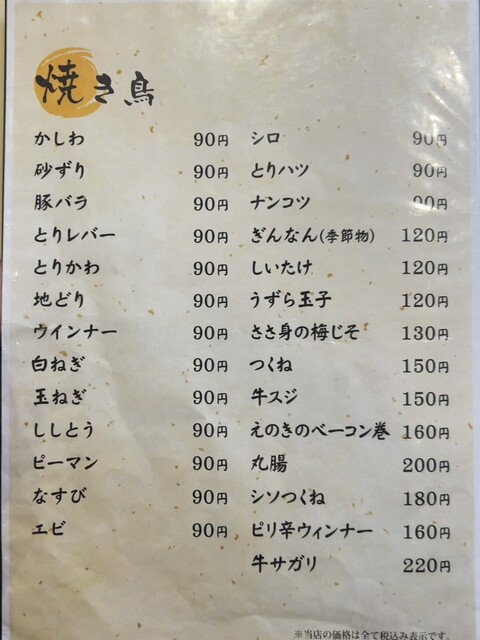 焼き鳥
かしわ 90円
砂ずり 90円
豚バラ 90円
とりレバー 90円
とりかわ 90円
地どり 90円
ウインナー 90円
白ねぎ 90円
玉ねぎ 90円
ししとう 90円
ピーマン 90円
なすび 90円
エビ 90円
シロ 90円
とりハツ 90円
ナンコツ 90円
ぎんなん(季節物) 120円
しいたけ 120円
うずら玉子 120円
ささ身の梅じそ 130円
つくね 150円
牛スジ 150円
えのきのベーコン巻 160円
丸腸 200円
シソつくね 180円
ピリ辛ウィンナー 160円
牛サガリ 220円
※当店の価格は全て税込み表示です。